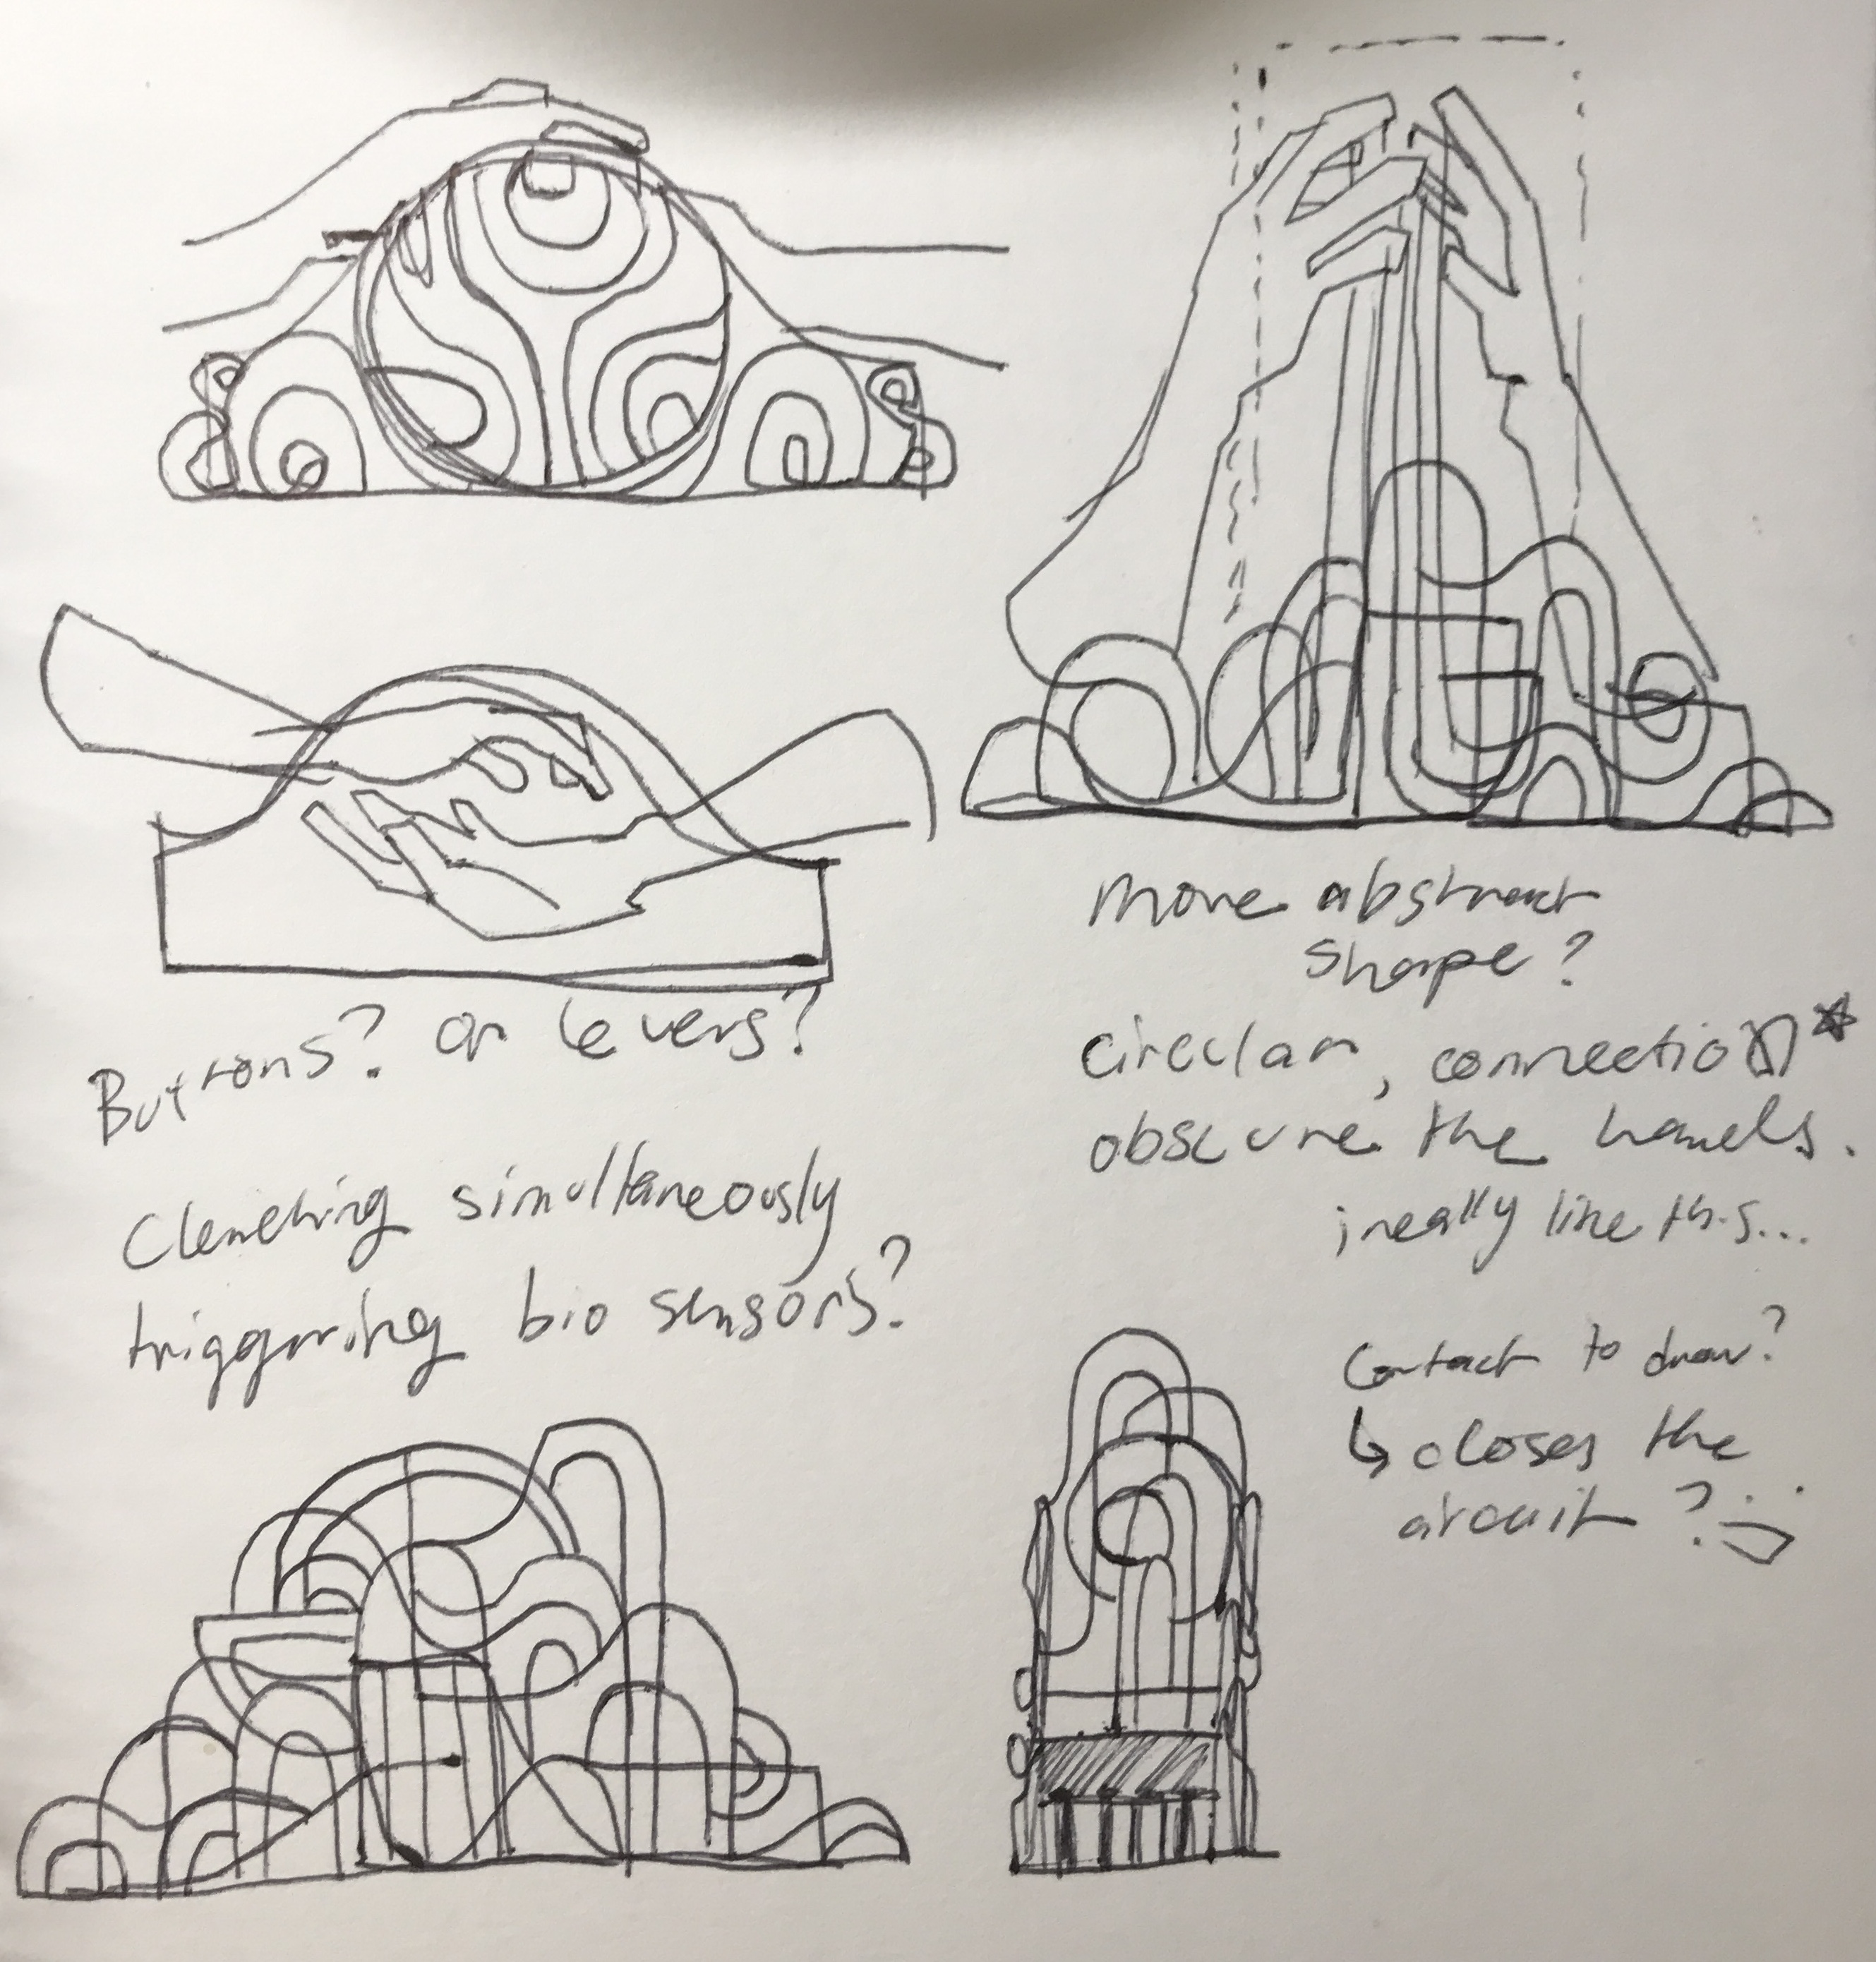 Buttons? or levers?
Clenching simultaneously
triggering bio sensors?
more abstract
shape?
circular, connection*
obscure the hands.
i really like this...
Contact to draw?
↳ closes the
circuit? :)